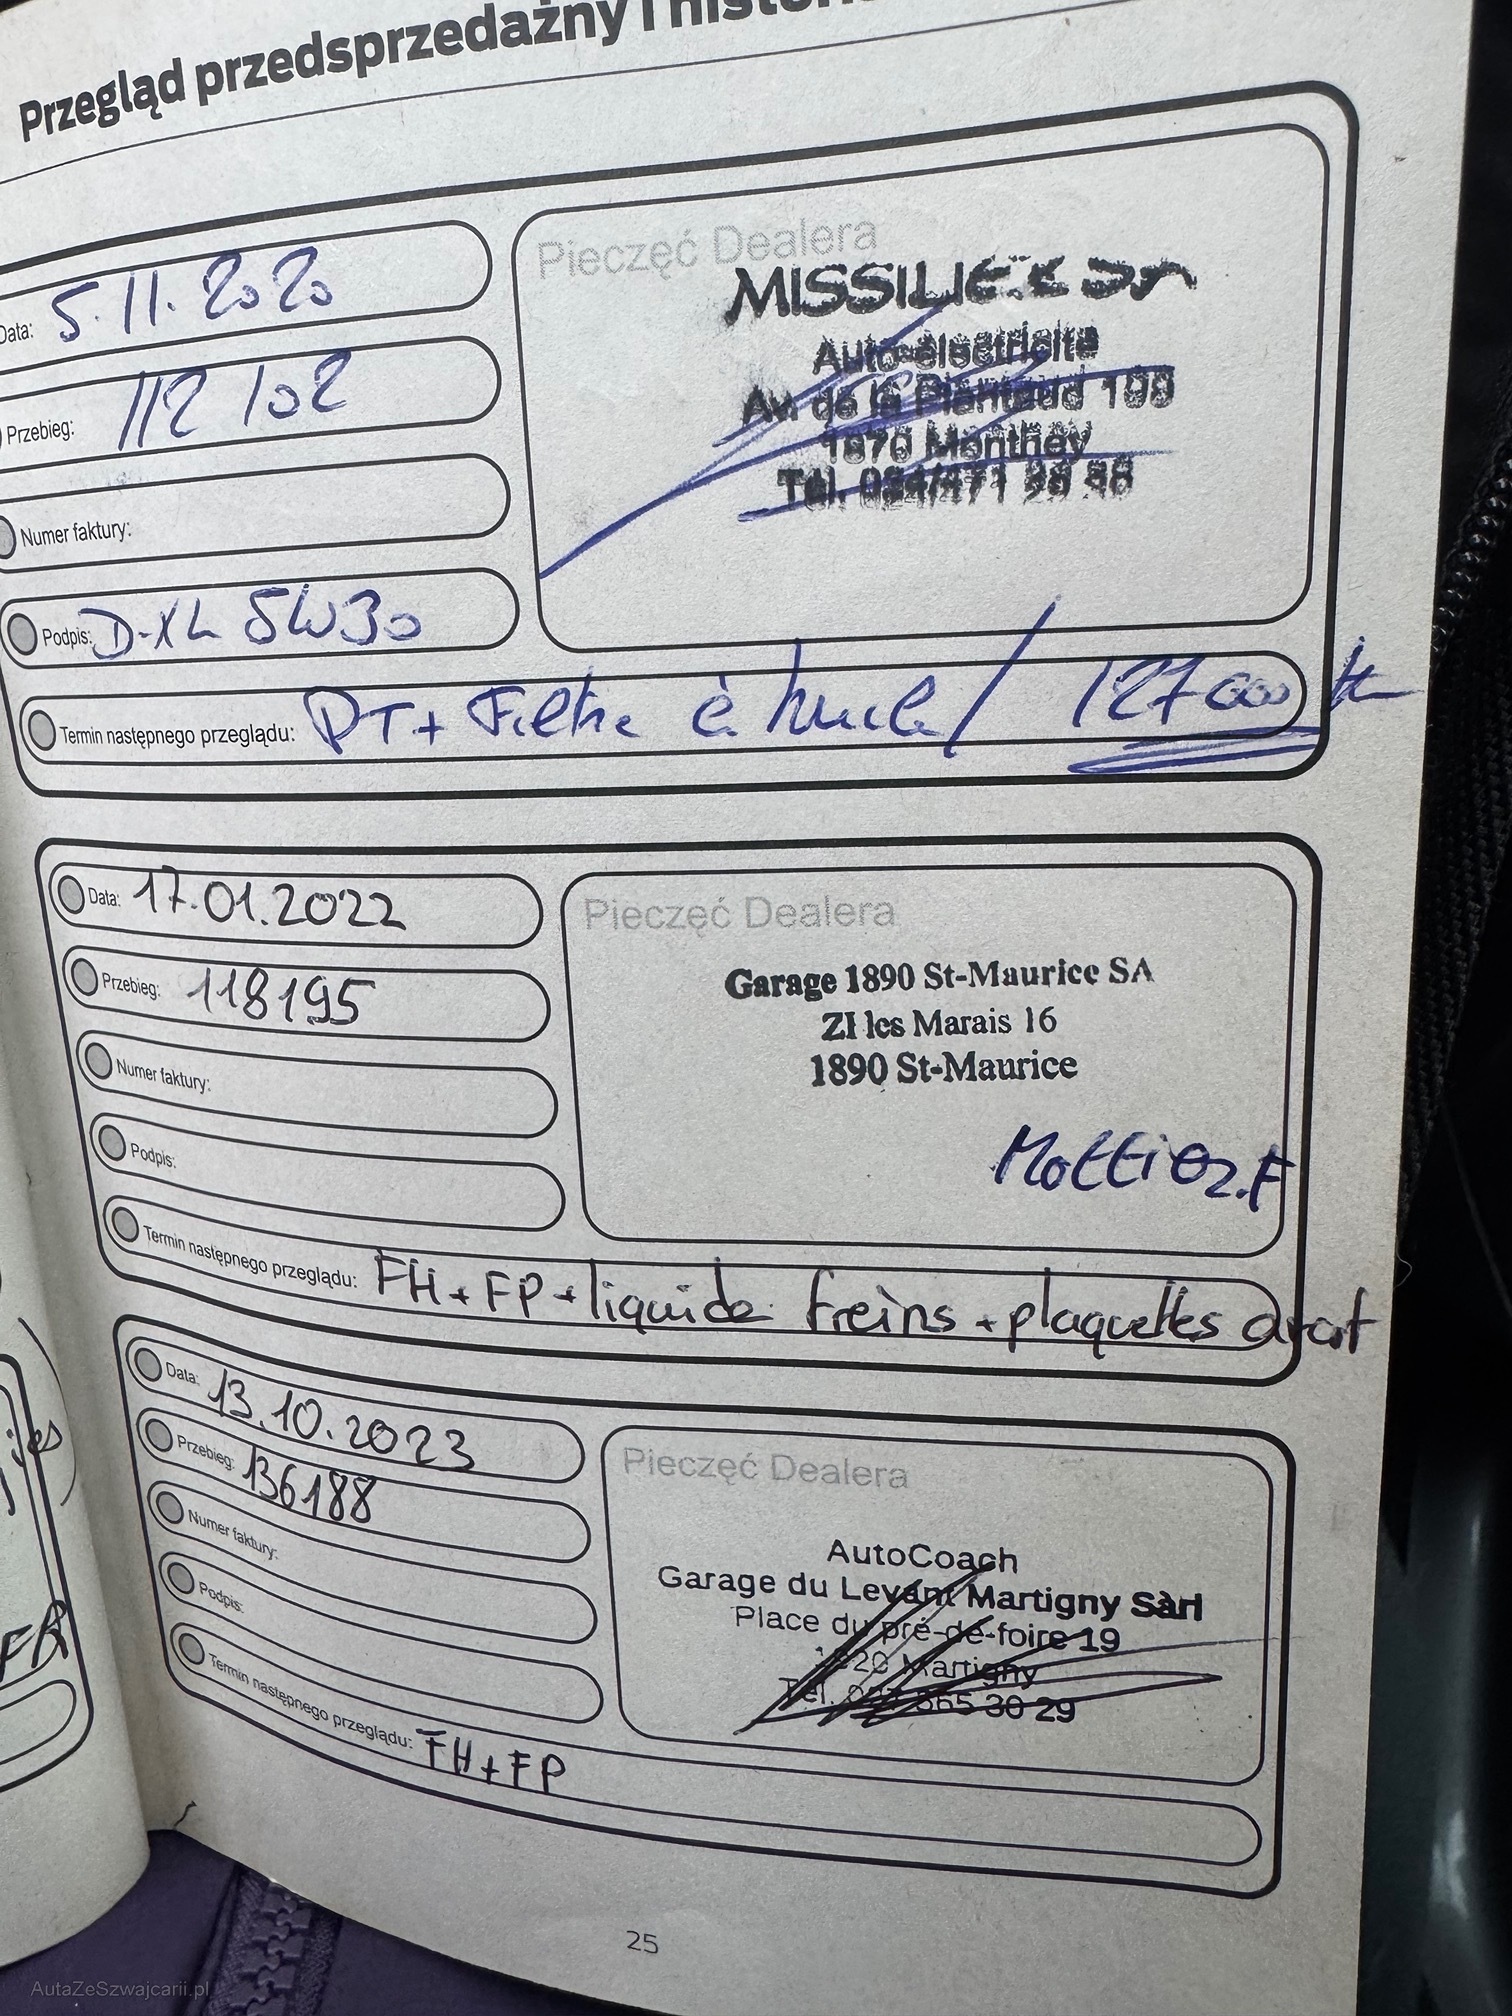 Przegląd przedsprzedażny i
Pieczęć Dealera
Data: 5.11.2020
Przebieg: 112 102
Numer faktury:
Podpis: D-XL 5W30
Termin następnego przeglądu: DT + Filtre à huile / 127 000
Auto-électricité
Av. de la Plantaud
1870 Monthey
Tél.
Data: 17.01.2022
Przebieg: 118195
Numer faktury:
Podpis:
Termin następnego przeglądu: FH + FP + liquide freins + plaquettes avant
Pieczęć Dealera
Garage 1890 St-Maurice SA
ZI les Marais 16
1890 St-Maurice
Data: 13.10.2023
Przebieg: 136188
Numer faktury:
Podpis:
Termin następnego przeglądu: FH + FP
Pieczęć Dealera
AutoCoach
Garage du Levant Martigny Sàrl
Place du pré-de-foire 19
Martigny
Tél. 565 30 29
25
AutaZeSzwajcarii.pl